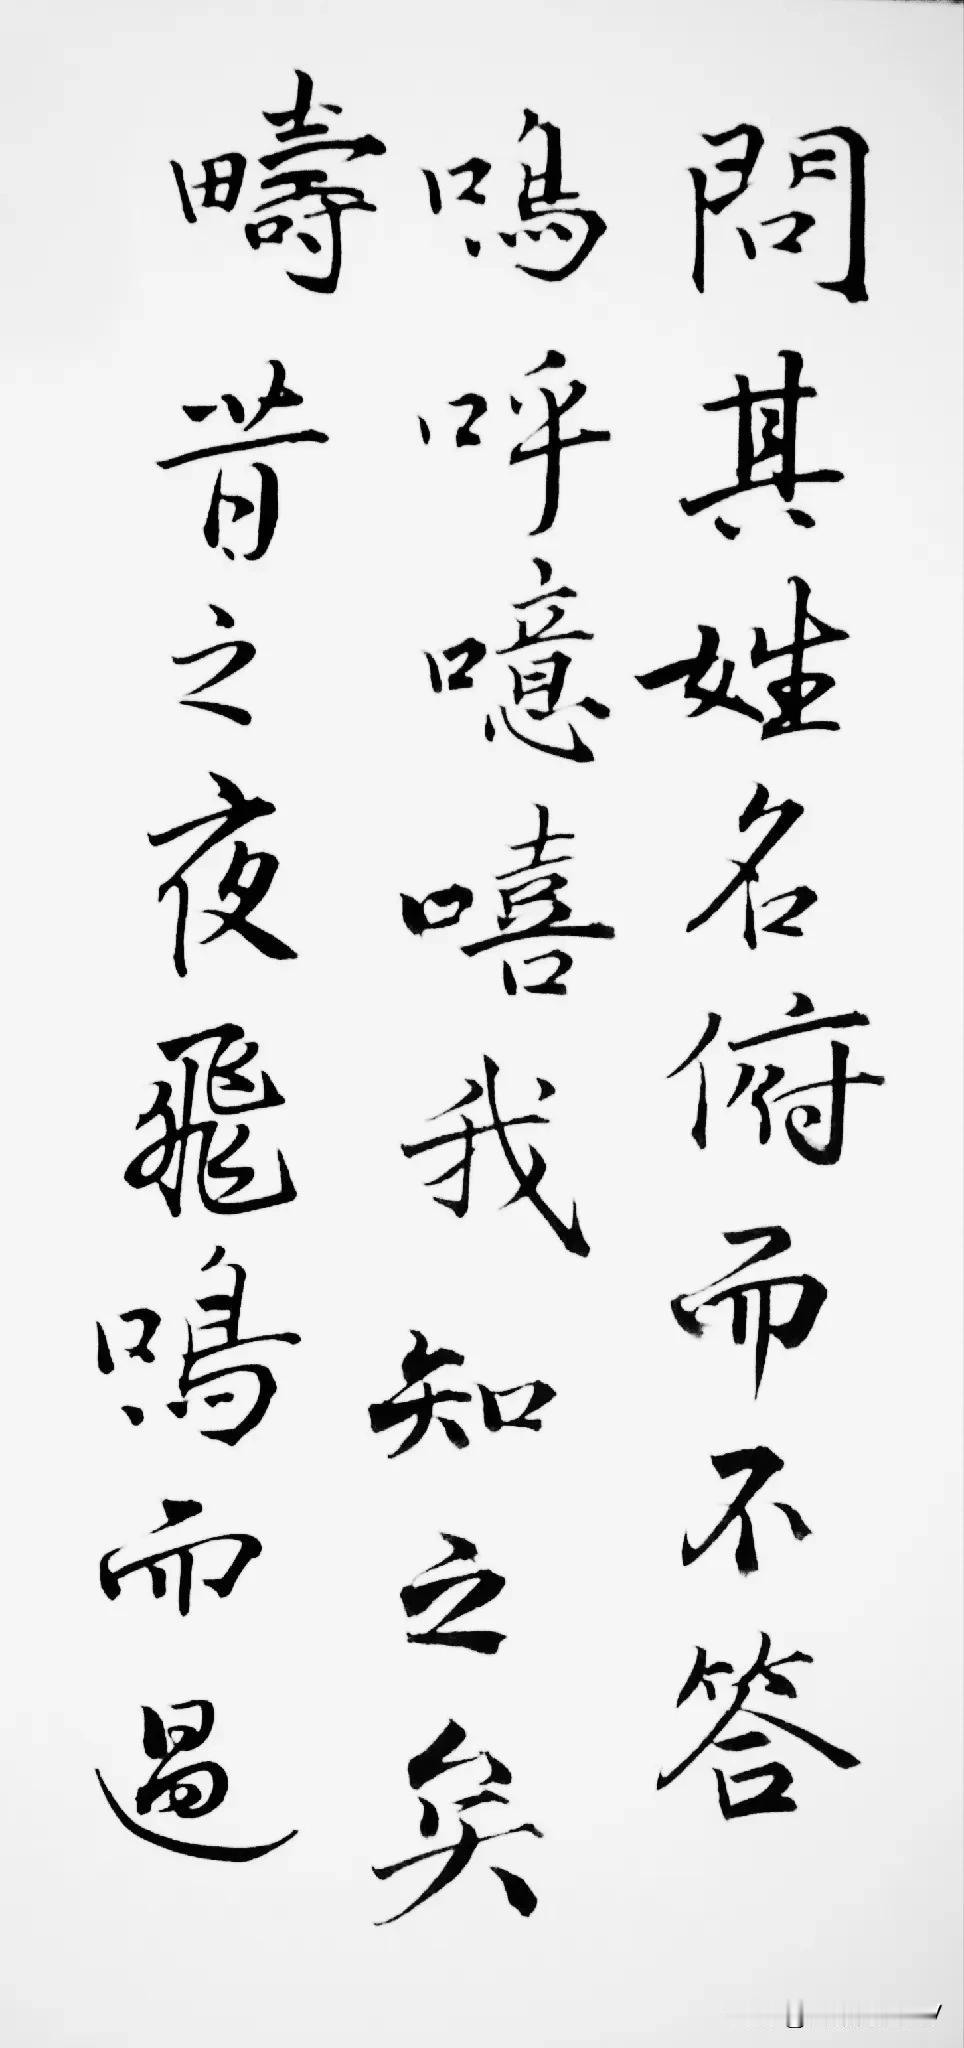 問其姓名俯而不答
嗚呼噫嘻我知之矣
疇昔之夜飛鳴而過